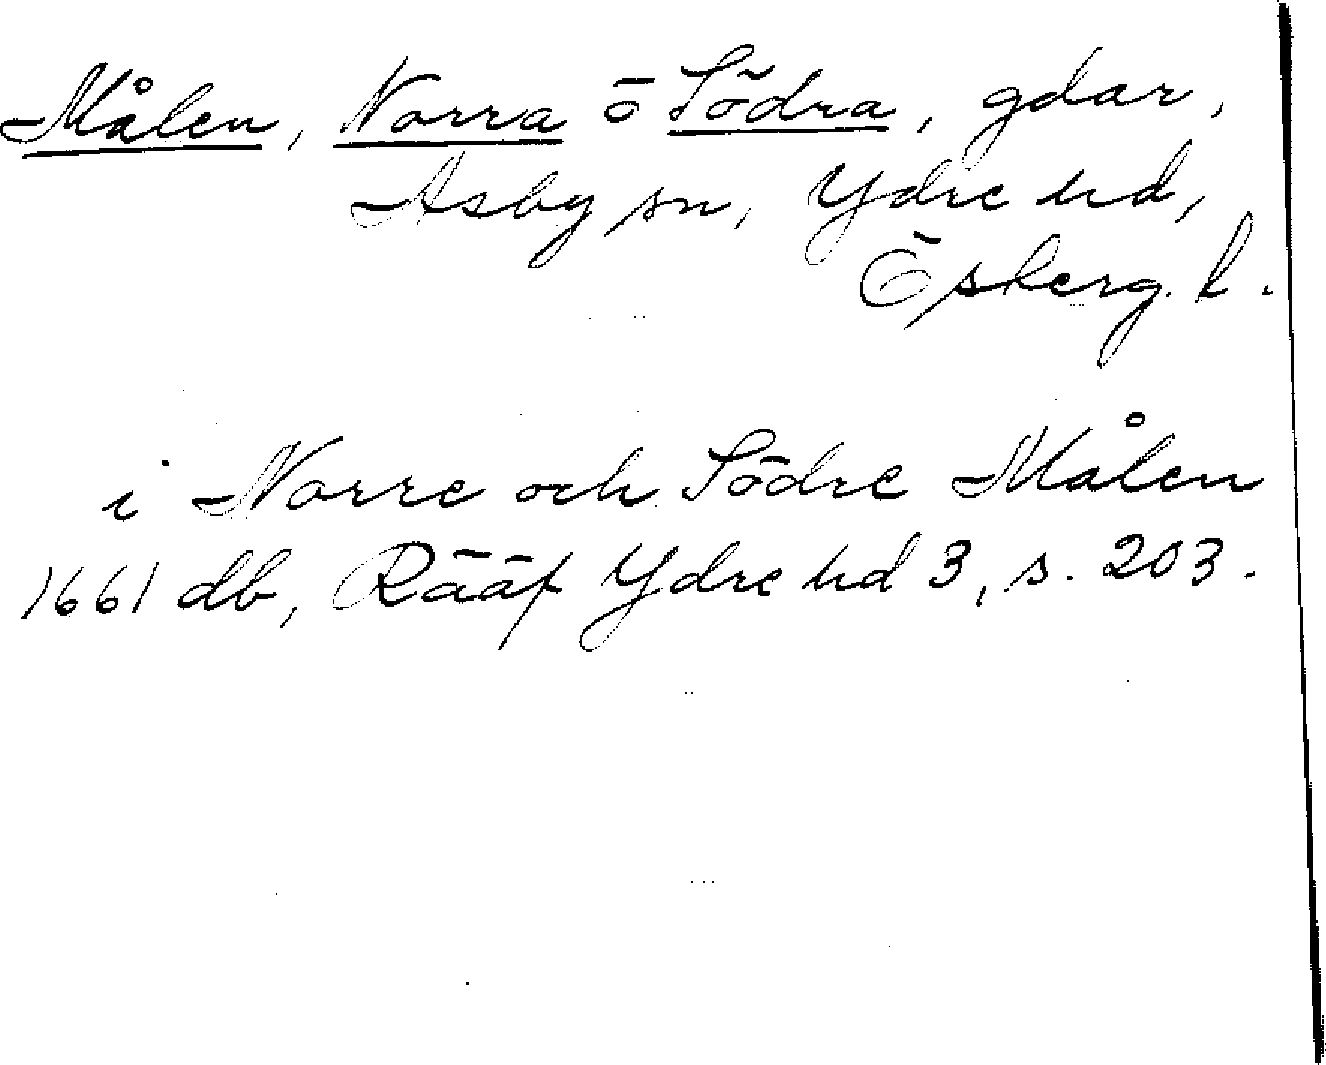 Målen, Norra o Södra, gdar,
Asby sn, Ydre hd,
Österg. l.
i Norre och Södre Målen
1661 db, Rääf Ydre hd 3, s. 203.